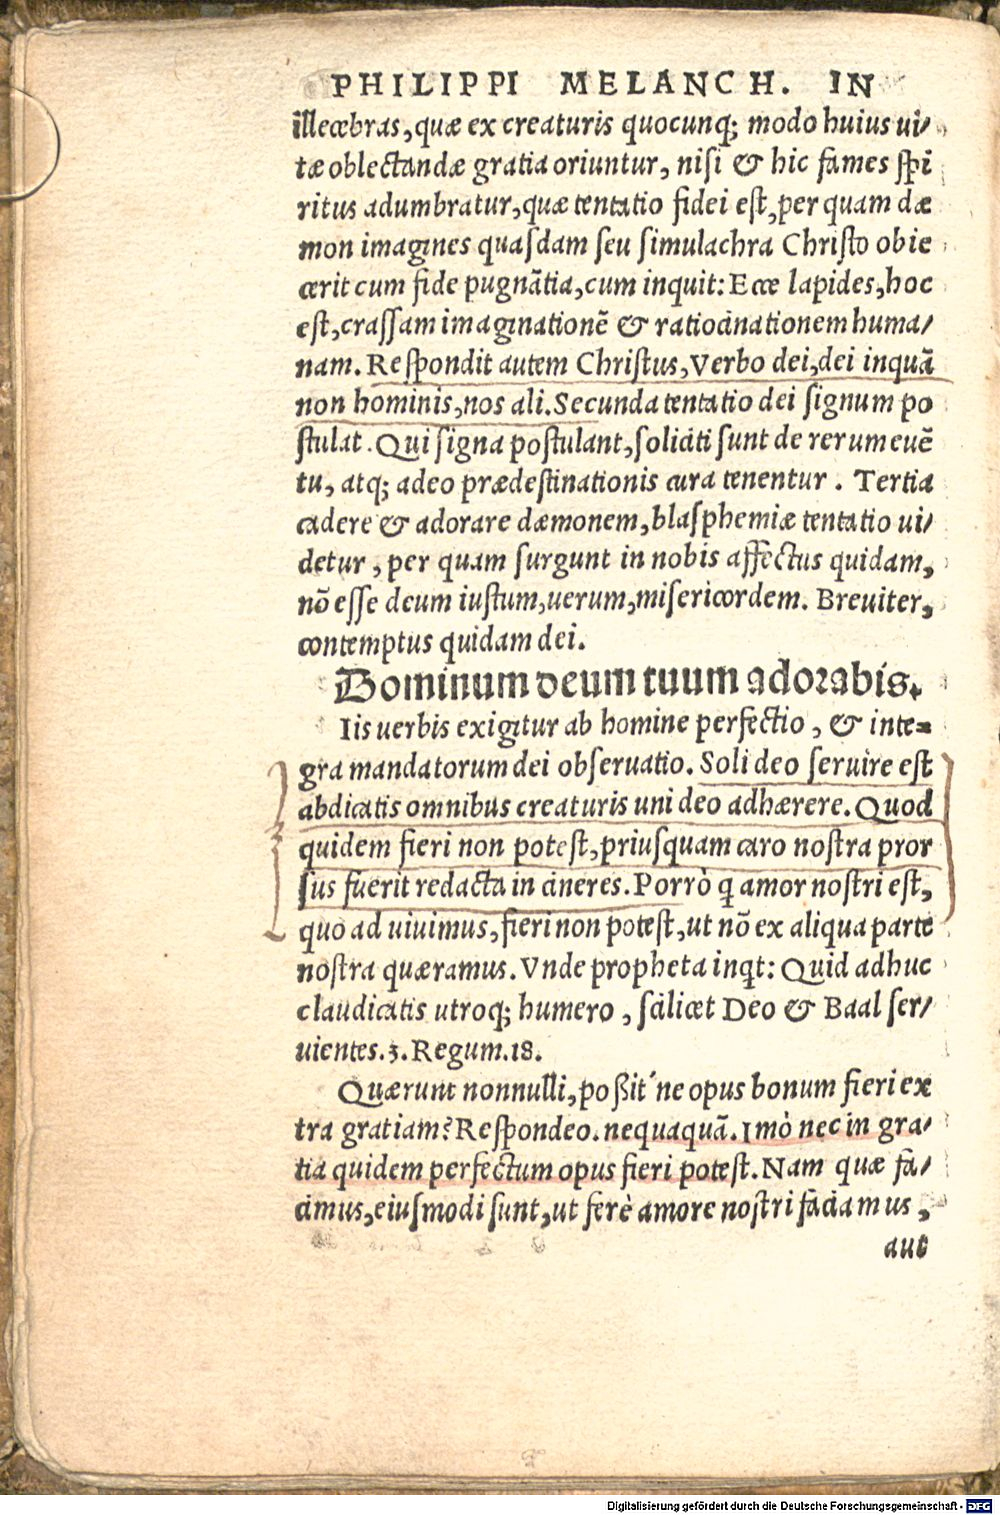 PHILIPPI MELANCH. IN
illecebras, quæ ex creaturis quocunq; modo huius ui⸗
tæ oblectandæ gratia oriuntur, nisi & hic fames spi
ritus adumbratur, quæ tentatio fidei est, per quam dæ
mon imagines quasdam seu simulachra Christo obie
cerit cum fide pugnãtia, cum inquit: Ecce lapides, hoc
est, crassam imaginationẽ & ratiocinationem huma⸗
nam. Respondit autem Christus, Verbo dei, dei inquã
non hominis, nos ali. Secunda tentatio dei signum po
stulat. Qui signa postulant, soliciti sunt de rerum euẽ
tu, atq; adeo prædestinationis cura tenentur. Tertia
cadere & adorare dæmonem, blasphemiæ tentatio ui⸗
detur, per quam surgunt in nobis affectus quidam,
nõ esse deum iustum, uerum, misericordem. Breuiter,
contemptus quidam dei.
Dominum deum tuum adorabis.
Iis uerbis exigitur ab homine perfectio, & inte⸗
gra mandatorum dei obseruatio. Soli deo seruire est
abdicatis omnibus creaturis uni deo adhærere. Quod
quidem fieri non potest, priusquam caro nostra pror
sus fuerit redacta in cineres. Porrò ꝗ amor nostri est,
quo ad uiuimus, fieri non potest, ut nõ ex aliqua parte
nostra quæramus. Vnde propheta inꝗt: Quid adhuc
claudicatis utroq; humero, scilicet Deo & Baal ser⸗
uientes. 3. Regum. 18.
Quærunt nonnulli, poßit´ne opus bonum fieri ex
tra gratiam? Respondeo. nequaquã. Imò nec in gra⸗
tia quidem perfectum opus fieri potest. Nam quæ fa⸗
cimus, eiusmodi sunt, ut ferè amore nostri faciamus,
aut
Digitalisierung gefördert durch die Deutsche Forschungsgemeinschaft - DFG